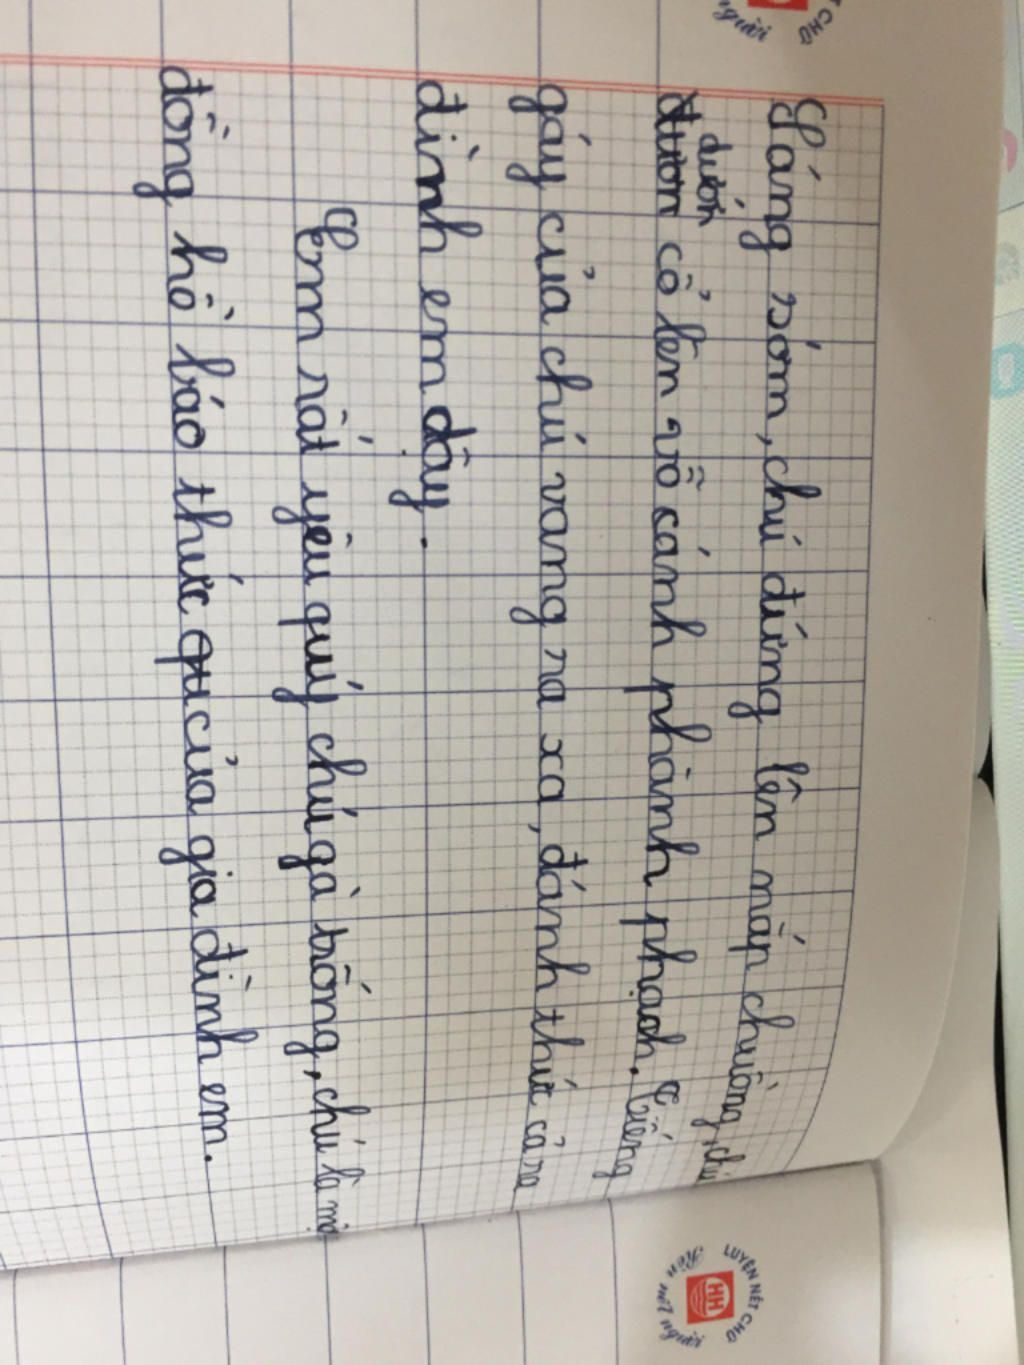 Sáng sớm, chú đứng lên nắp chuồng, chú
dướn
đươn cổ lên vỗ cánh phành phạch. Tiếng
gáy của chú vang ra xa, đánh thức cả
đình em dậy.
Em rất yêu quý chú gà trống, chú là
đồng hồ báo thức của gia đình em.
LUYỆN NÉT CHỮ
HH
Rèn nết người
người CHỮ